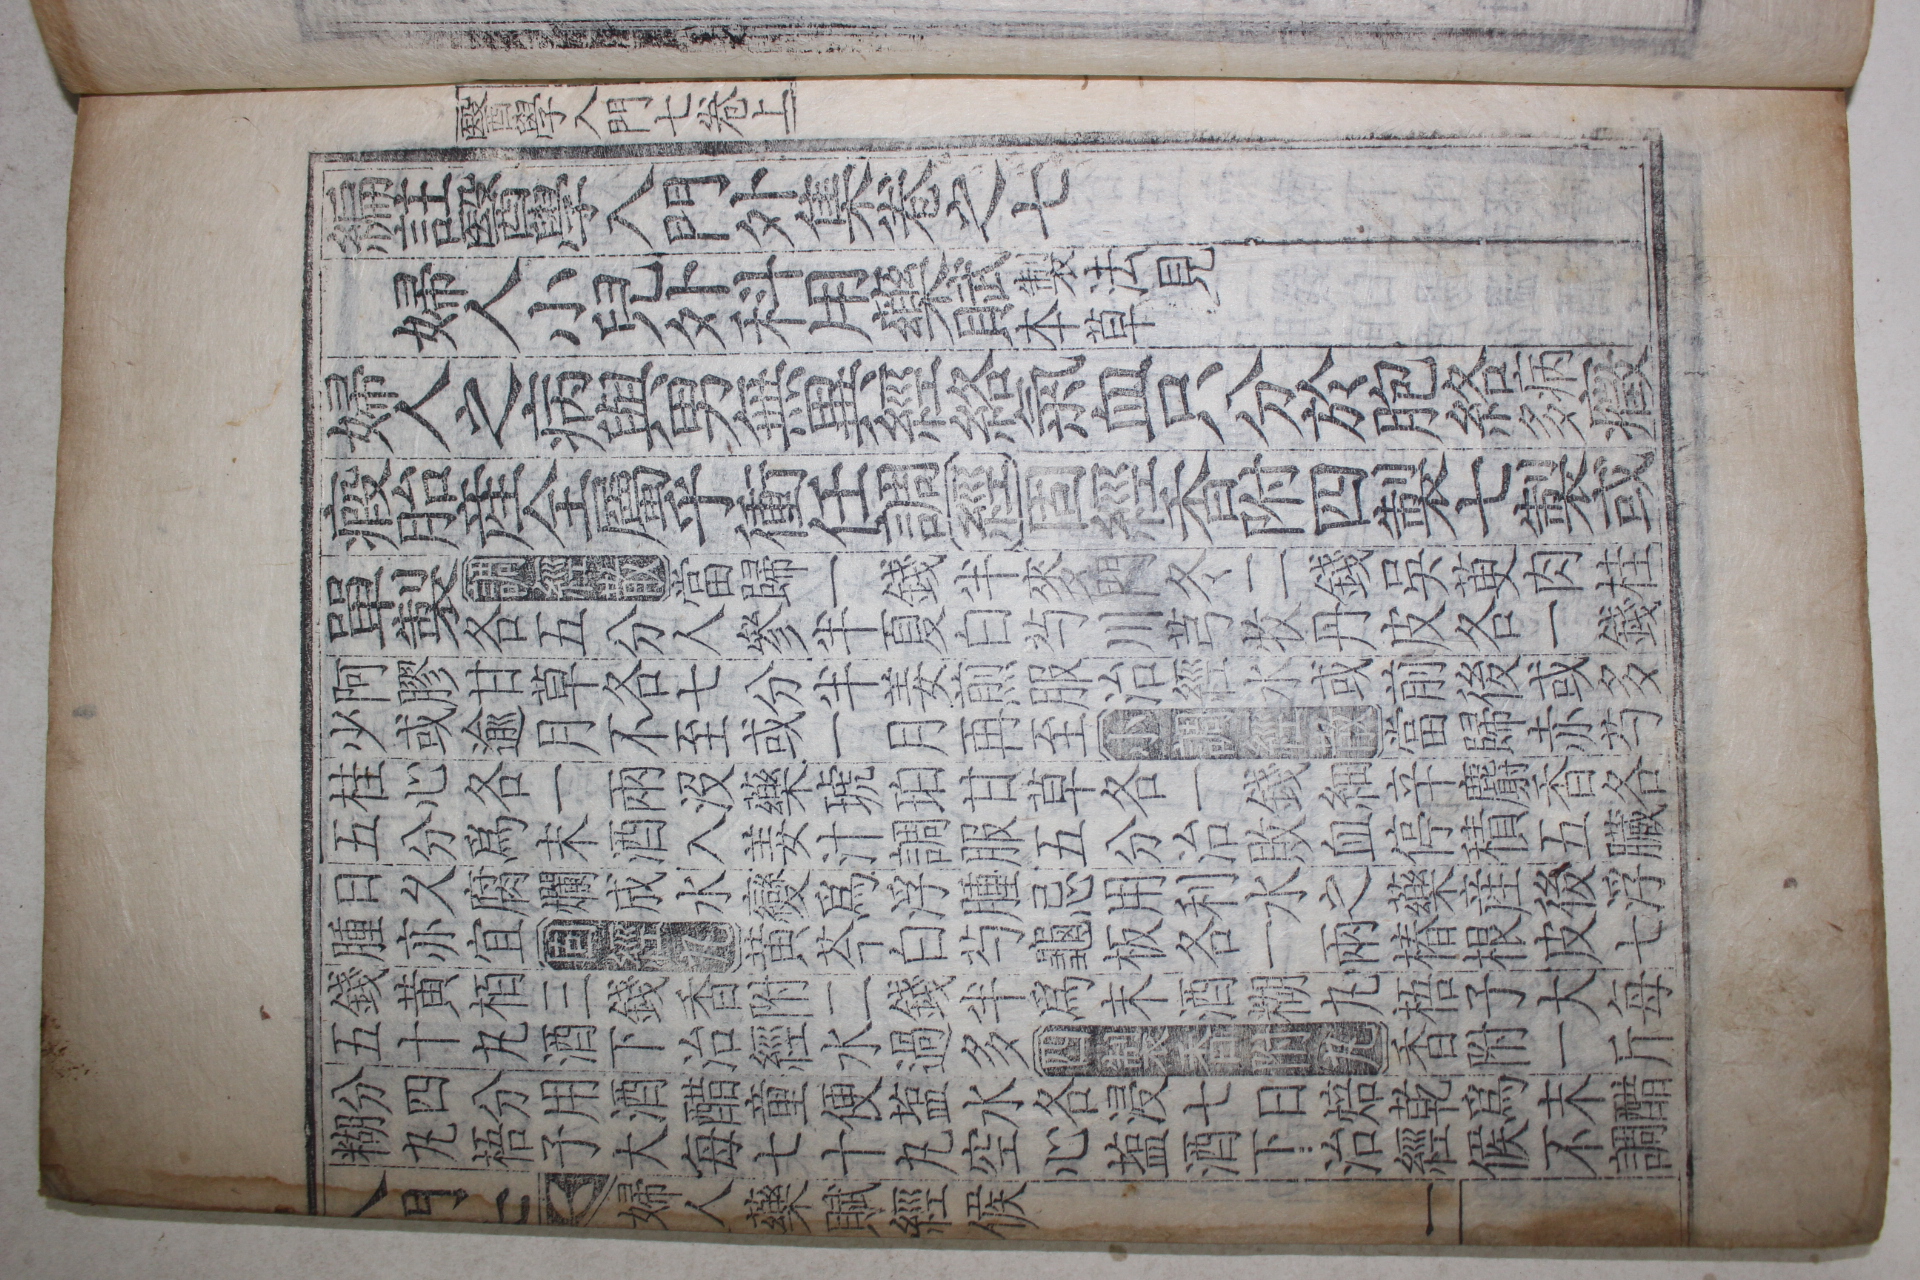 醫學入門七卷上
編註醫學入門外集卷之七
婦人小兒外科用藥賦
製法見
本草
婦人之病與男無異經絡氣血只分於胞絡多病癥
瘕胎産全屬乎衝任調經固經香附四製七製或
單製
調經散當歸一錢半麥門冬二錢吳茰肉桂
各五分人參半夏白芍川芎牧丹皮各一錢
阿膠甘草各七分半姜煎服治經水或前後或多
少或逾月不至或一月再至小調經散當歸赤芍
桂心各一兩沒藥琥珀甘草各一錢細辛麝香各
五分爲末酒入姜汁調服五分治敗血停積五臟
日久腐爛成水變爲浮腫忌用利水之藥産後浮
腫亦宜固經丸黃芩白芍龜板各一兩椿根皮七
錢黃栢三錢香附二錢半爲末酒糊丸梧子大每
五十丸酒下治經水過多四製香附丸香附一斤
分四分用酒醋童便塩水各浸七日焙乾爲末醋
糊丸梧子大每七十丸空心塩酒下治經候不調
入門七 婦人藥賦經候 一